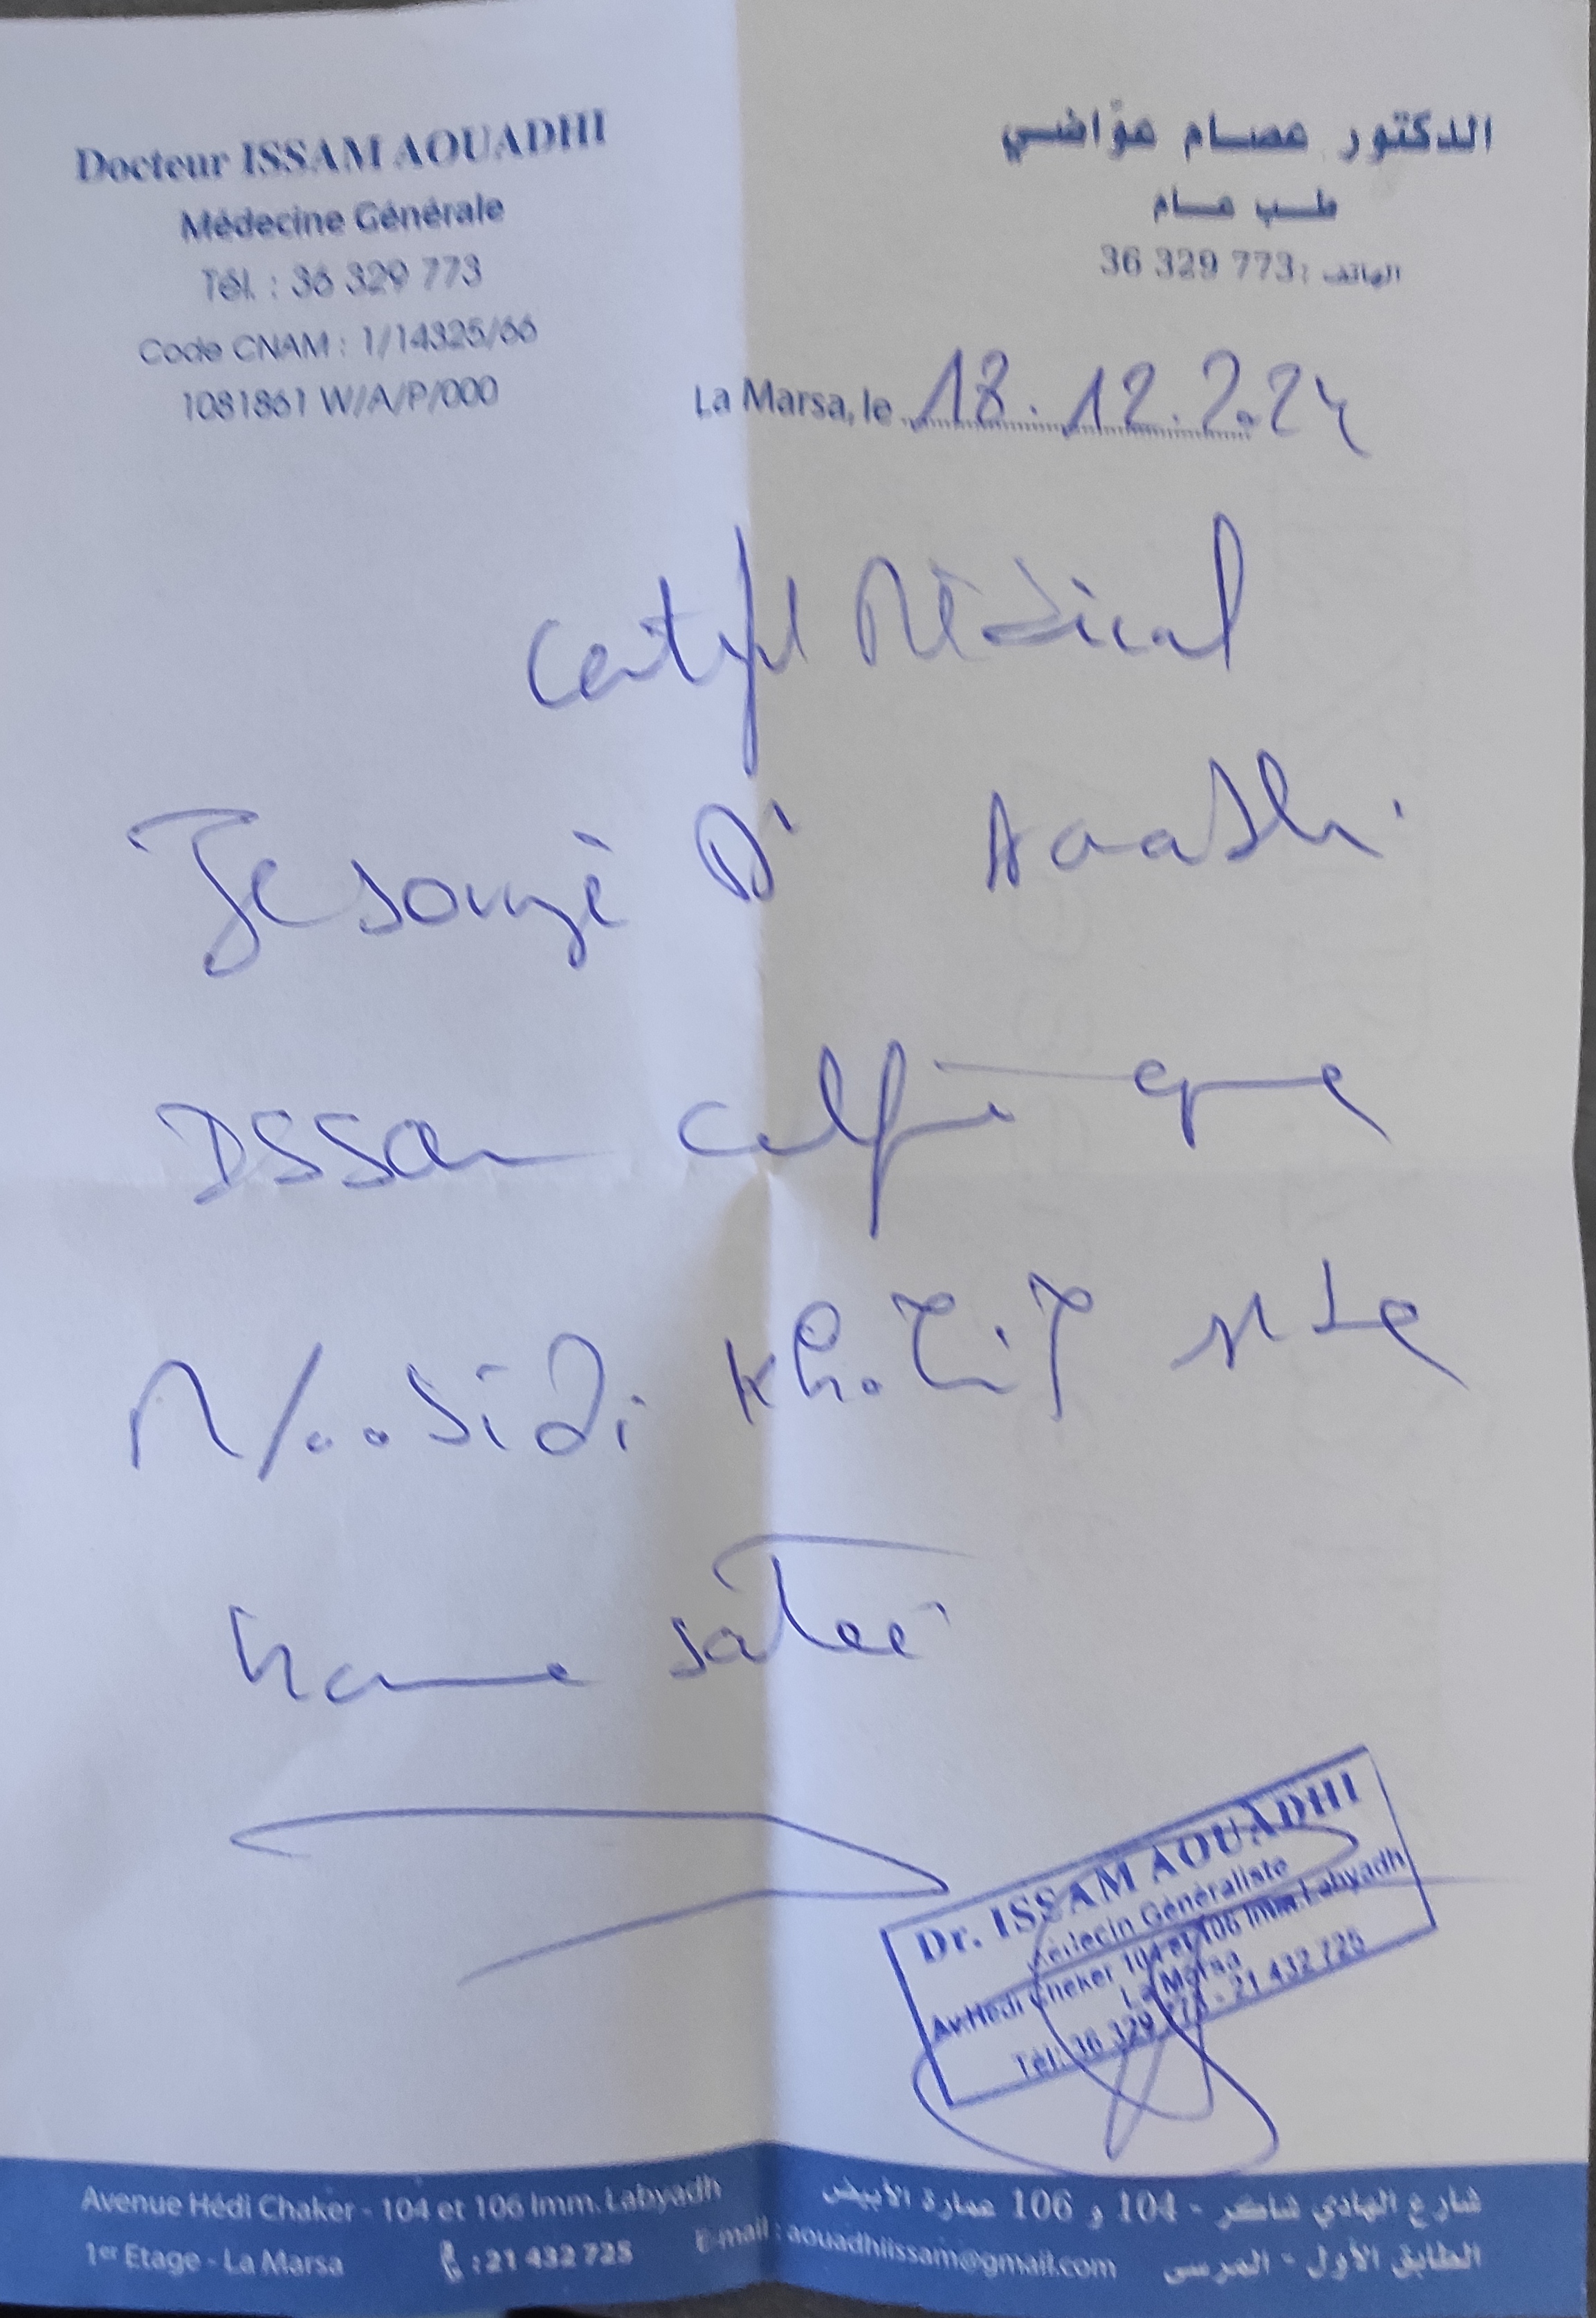 Docteur ISSAM AOUADHI
Médecine Générale
Tél. : 36 329 773
Code CNAM : 1/14325/66
1081861 W/A/P/000
الدكتور عصام عوّاضي
طب عام
الهاتف : 36 329 773
La Marsa, le 18.12.2024
Certifi Médical
Je sousigé Dr Aouadhi
Issam certifie que
Sidi
bonne santé
Dr. ISSAM AOUADHI
Médecin Généraliste
Av. Hédi Chaker 104 et 106 Imm. Labyadh
La Marsa
Tél: 36 329 773 - 21 432 725
Avenue Hédi Chaker - 104 et 106 Imm. Labyadh
1er Etage - La Marsa : 21 432 725
E-mail : aouadhiissam@gmail.com
شارع الهادي شاكر - 104 و 106 عمارة الأبيض
الطابق الأول - المرسى